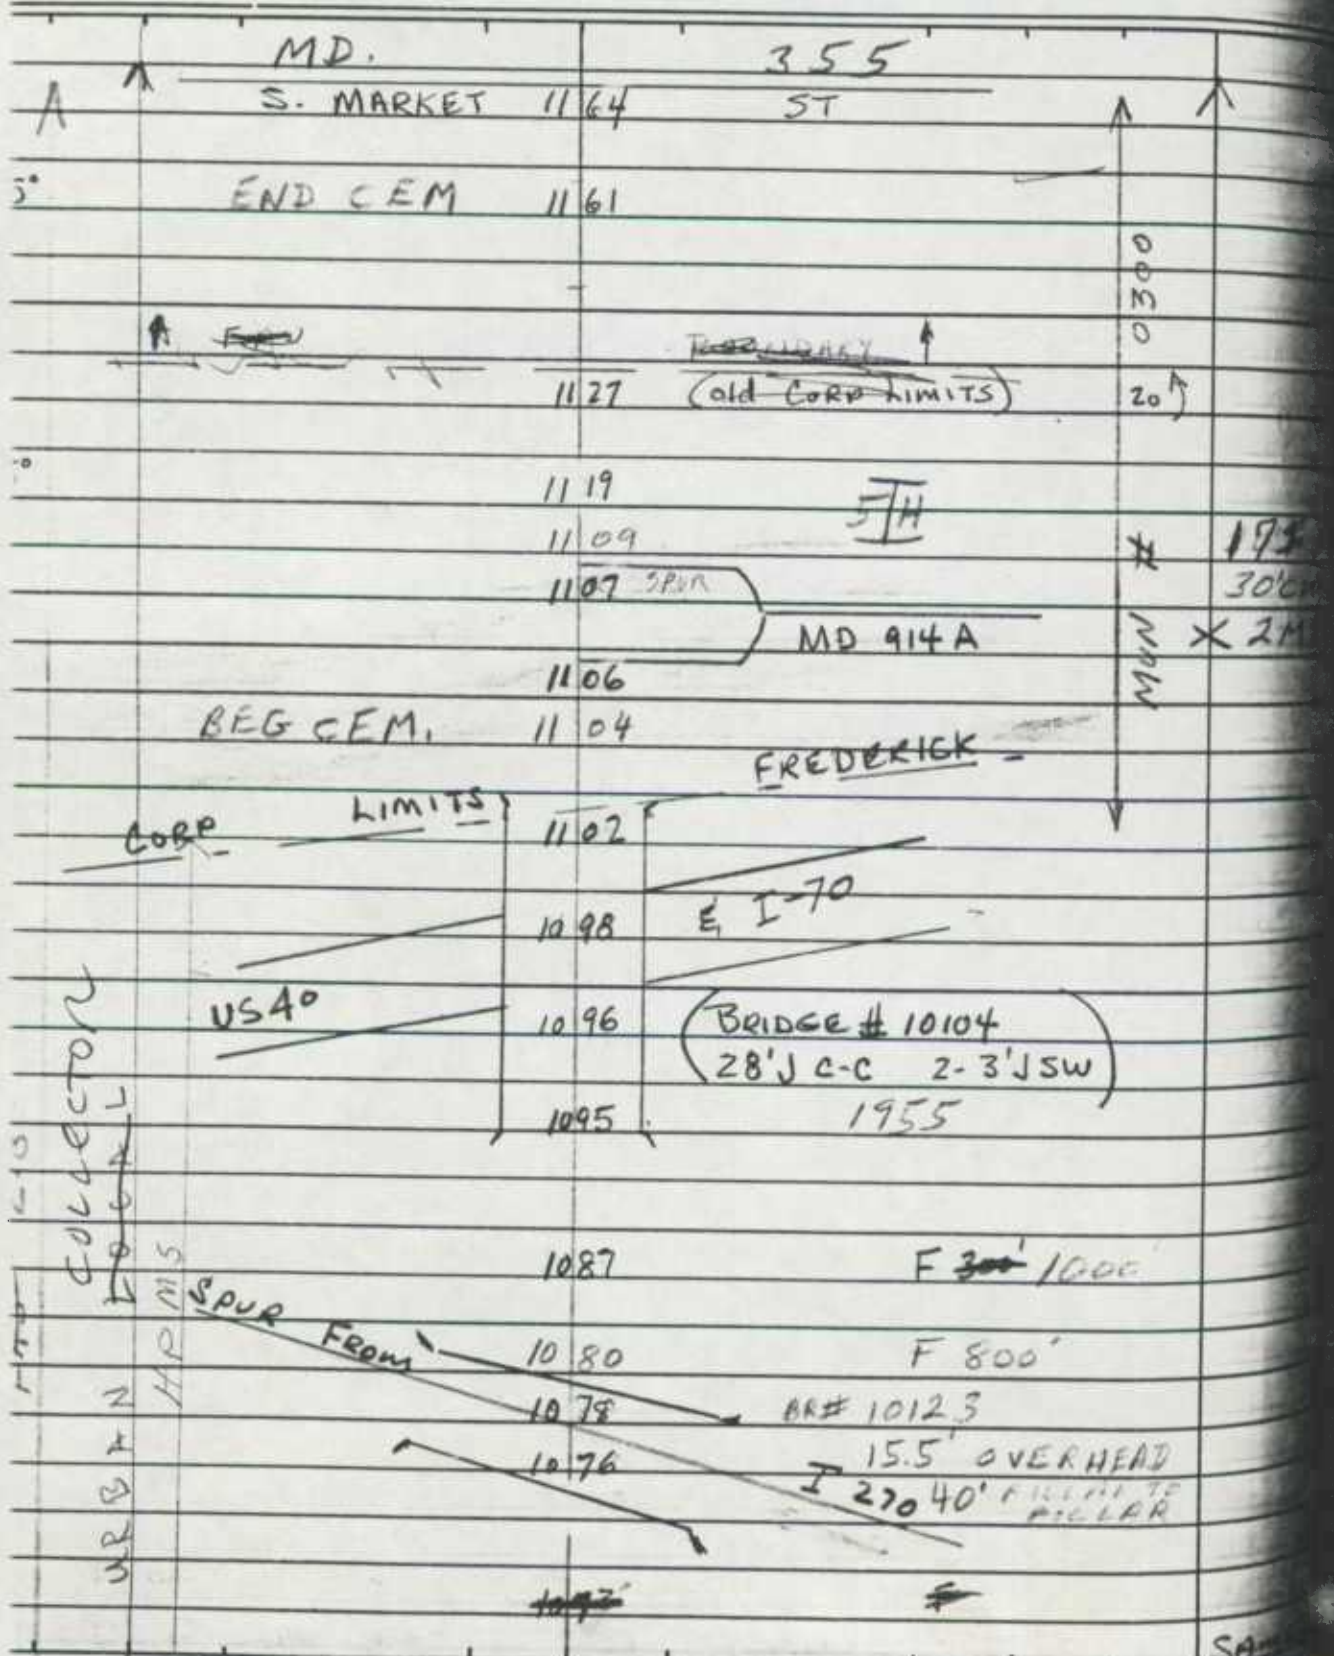 MD. 355
S. MARKET 1164 ST
A
END CEM 1161
0300
1127 (old CORP LIMITS) 20'
1119
5/H
1109
1107 SPUR
MD 914 A
1106
BEG CEM. 1104
MUN #
30'
X 2
FREDERICK
CORP LIMITS 1102
& I-70
1098
US40
1096 (BRIDGE # 10104
28'J C-C 2-3'J SW)
1095 1955
URBAN COLLECTOR
LOCAL
HPMS
1087 F 300' 1000'
SPUR FROM I 270
1080 F 800'
1078 BR# 10123
1076 15.5' OVERHEAD
40' PILLAR TO
PILLAR